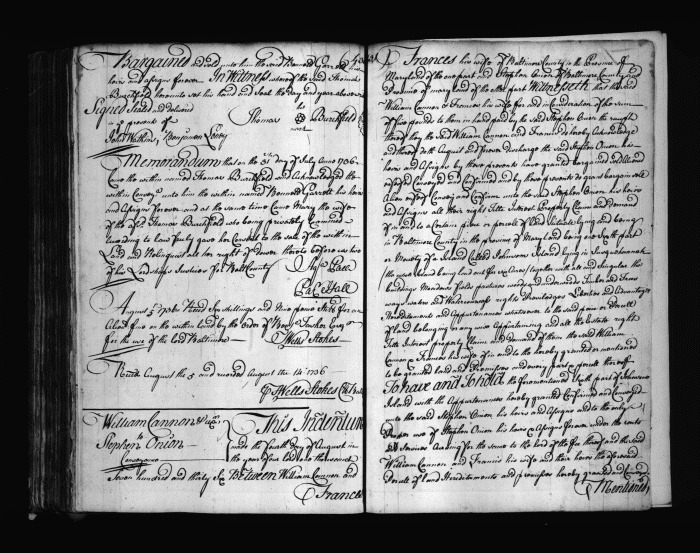 Bargained and sold unto him the said Bennett Garrett his
heirs and assigns forever In Witness whereof the said Thomas
Burchfield hereunto set his hand and Seal the day and year above
Signed Sealed and delivered
in presents of
Thomas his mark Burchfield
John Watkins, Benjamin
Memorandum that on the day of July Anno 1736
Came the within named Thomas Burchfield and Acknowledged the
within unto him the within named Bennett Garrett his heirs
and assigns forever and at the same time Came Mary the wife
of the said Thomas Burchfield who being privately Examined
according to Law freely gave her Consent to the sale of the within
Land and Relinquished her right of dower thereto before us two
of his Lordships Justices for Balt County
Hall
August 5 1736 Recd Six shillings and Nine pence for an
Alienation fine on the within Land by the Order of
for the use of the Lord Baltimore
Wells Stokes
Recd August the 5 and recorded August the 14 1736
Wells Stokes
William Cannon
Stephen Onion
Conveyance
This Indenture
made the fourth day of August in
the year of our Lord one thousand
Seven hundred and thirty Six Between William Cannon and
Frances
Frances his wife of Baltimore County in the Province of
Maryland of the one part and Stephen Onion of Baltimore County and
Province of Maryland of the other part Witnesseth that the said
William Cannon & Frances his wife for and in Consideration of the sum
of pounds to them in hand paid by the said Stephen Onion the receipt
thereof they the said William Cannon and Frances do hereby Acknowledge
and thereof doth Acquitt and forever discharge the said Stephen Onion his
heirs and Assigns by these presents have granted bargained
released Conveyed and Confirmed and by these presents do grant bargain sell
Alien release Convey and Confirm unto the said Stephen Onion his heirs
and Assigns all their right Title Interest Property Claim and demand
of in and to a Certain piece or parcell of land Scituate lying and being
in Baltimore County in the province of Maryland being one Sixth part
or of Island Called Johnsons Island lying in Susquehannah
together with all and Singular the
buildings Meadows fields pastures woods and underwoods Timber and Timber
ways waters and Watercourses rights Priviledges Liberties and advantages
Hereditaments and Appurtenances whatsoever to the said piece or Parcell
of land belonging or any wise Appertaining and all the Estate right
Title Interest property Claim and demand of them the said William
Cannon & Frances his wife of in and to the hereby granted or mentioned
to be granted land and Premisses and every part & parcell thereof
To have and To hold the forementioned Sixth part of Johnsons
Island with the Appurtenances hereby granted Confirmed and Conveyed
unto the said Stephen Onion his heirs and Assigns and to the only
use of Stephen Onion his heirs & Assigns forever under the rents
& Services Accruing for the same to the Lord of the fee thereof and the said
William Cannon and Frances his wife and their heirs the aforesaid
Parcell of land Hereditaments and premisses hereby granted and
Mentioned